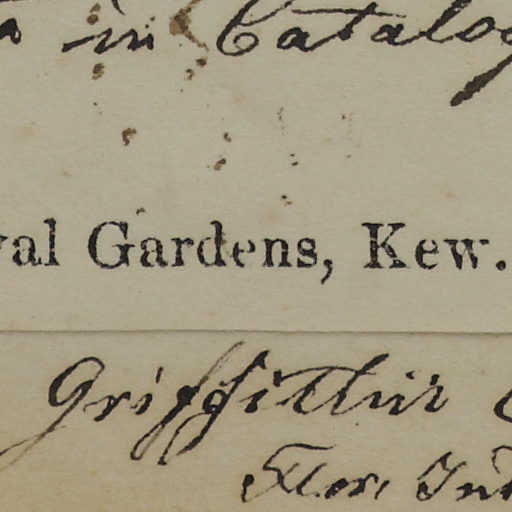 in Catalog
al Gardens, Kew.
Griffithii
Flor. Ind